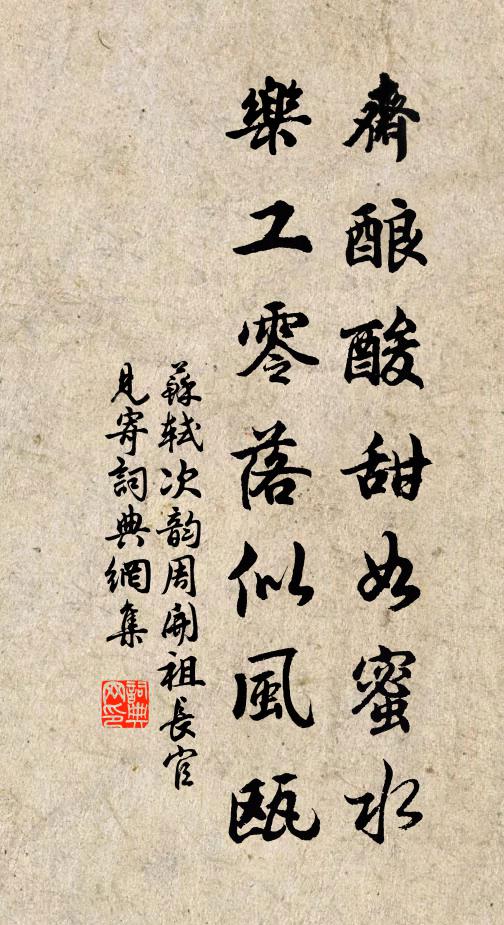 齋釀酸甜如蜜水
樂工零落似風甌
蘇軾次韵周開祖長官
見寄詞典網集
詞典
网印